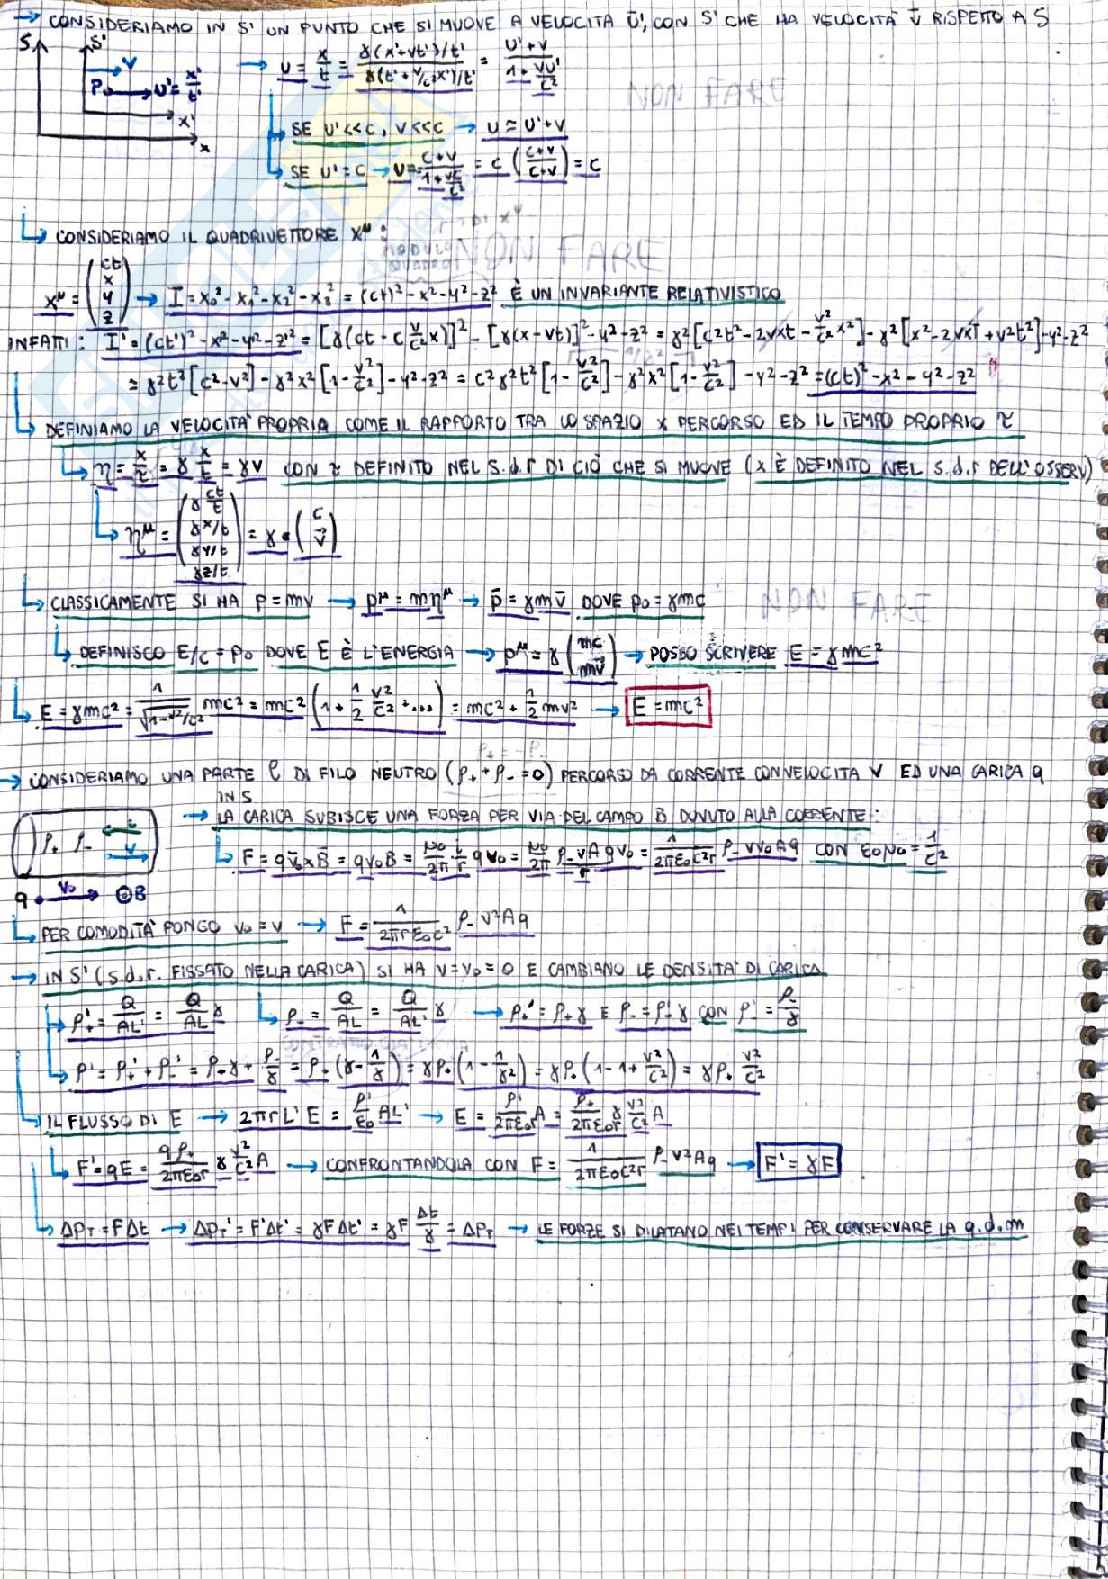 → CONSIDERIAMO IN S' UN PUNTO CHE SI MUOVE A VELOCITÀ Ū', CON S' CHE HA VELOCITÀ V̄ RISPETTO A S
S S' V P U' = x'/t' x' x
→ U = x/t = γ(x'+vt')/t' / γ(t'+v/c² x')/t' = (U'+V)/(1+VU'/c²)
NON FARE
SE U'<<C, V<<C → U ≃ U'+V
SE U' = C → V = (C+V)/(1+VC/C²) = C ((C+V)/(C+V)) = C
↳ CONSIDERIAMO IL QUADRIVETTORE X^μ :
NON FARE
x^μ = (ct x y z) → I = x₀² - x₁² - x₂² - x₃² = (ct)² - x² - y² - z² È UN INVARIANTE RELATIVISTICO
INFATTI : I' = (ct')² - x'² - y'² - z'² = [γ(ct - c v/c² x)]² - [γ(x - vt)]² - y² - z² = γ² [c²t² - 2vxt - v²/c² x²] - γ² [x² - 2vxt + v²t²] - y² - z²
= γ²t² [c² - v²] - γ²x² [1 - v²/c²] - y² - z² = c²γ²t² [1 - v²/c²] - γ²x² [1 - v²/c²] - y² - z² = (ct)² - x² - y² - z²
DEFINIAMO LA VELOCITÀ PROPRIA COME IL RAPPORTO TRA LO SPAZIO X PERCORSO ED IL TEMPO PROPRIO τ
↳ η = x/τ = γ x/t = γv CON τ DEFINITO NEL S.d.r DI CIÒ CHE SI MUOVE (X È DEFINITO NEL S.d.r DELL'OSSERV)
↳ η^μ = (γ ct/t γx/t γy/t γz/t) = γ • (c v̄)
↳ CLASSICAMENTE SI HA P = mv → p^μ = mη^μ → p̄ = γmv̄ DOVE p₀ = γmc
NON FARE
↳ DEFINISCO E/c = P₀ DOVE E È L'ENERGIA → p^μ = γ (mc mv̄) → POSSO SCRIVERE E = γmc²
↳ E = γmc² = 1/√(1-v²/c²) mc² = mc² (1 + 1/2 v²/c² + ...) = mc² + 1/2 mv² → E = mc²
ρ₊ = -ρ₋
→ CONSIDERIAMO UNA PARTE ℓ DI FILO NEUTRO (ρ₊ + ρ₋ = 0) PERCORSO DA CORRENTE CON VELOCITÀ V ED UNA CARICA q
IN S
ρ₊ ρ₋ i v
→ LA CARICA SUBISCE UNA FORZA PER VIA DEL CAMPO B DOVUTO ALLA CORRENTE :
↳ F = qv̄₀×B̄ = qv₀B = μ₀/2π i/r qv₀ = μ₀/2π ρ₋vA/r qv₀ = 1/2πε₀c²r ρ₋vv₀Aq CON ε₀μ₀ = 1/c²
q v₀ ⊙B
↳ PER COMODITÀ PONGO v₀ = v → F = 1/2πrε₀c² ρ₋v²Aq
→ IN S' (s.d.r. FISSATO NELLA CARICA) SI HA V = V₀ = 0 E CAMBIANO LE DENSITÀ DI CARICA
↳ ρ₊' = Q/AL' = Q/AL γ ↳ ρ₋ = Q/AL = Q/AL' γ → ρ₊' = ρ₊γ E ρ₋ = ρ₋'γ CON ρ₋' = ρ₋/γ
↳ ρ' = ρ₊' + ρ₋' = ρ₊γ + ρ₋/γ = ρ₊ (γ - 1/γ) = γρ₊ (1 - 1/γ²) = γρ₊ (1 - 1 + v²/c²) = γρ₊ v²/c²
↳ IL FLUSSO DI E → 2πrL'E = ρ'/ε₀ AL' → E = ρ'/2πε₀r A = ρ₊/2πε₀r γ v²/c² A
↳ F' = qE = qρ₊/2πε₀r γ v²/c² A → CONFRONTANDOLA CON F = 1/2πε₀c²r ρ₋v²Aq → F' = γF
↳ ΔP_T = FΔt → ΔP_T' = F'Δt' = γFΔt' = γF Δt/γ = ΔP_T → LE FORZE SI DILATANO NEI TEMPI PER CONSERVARE LA q.d.m